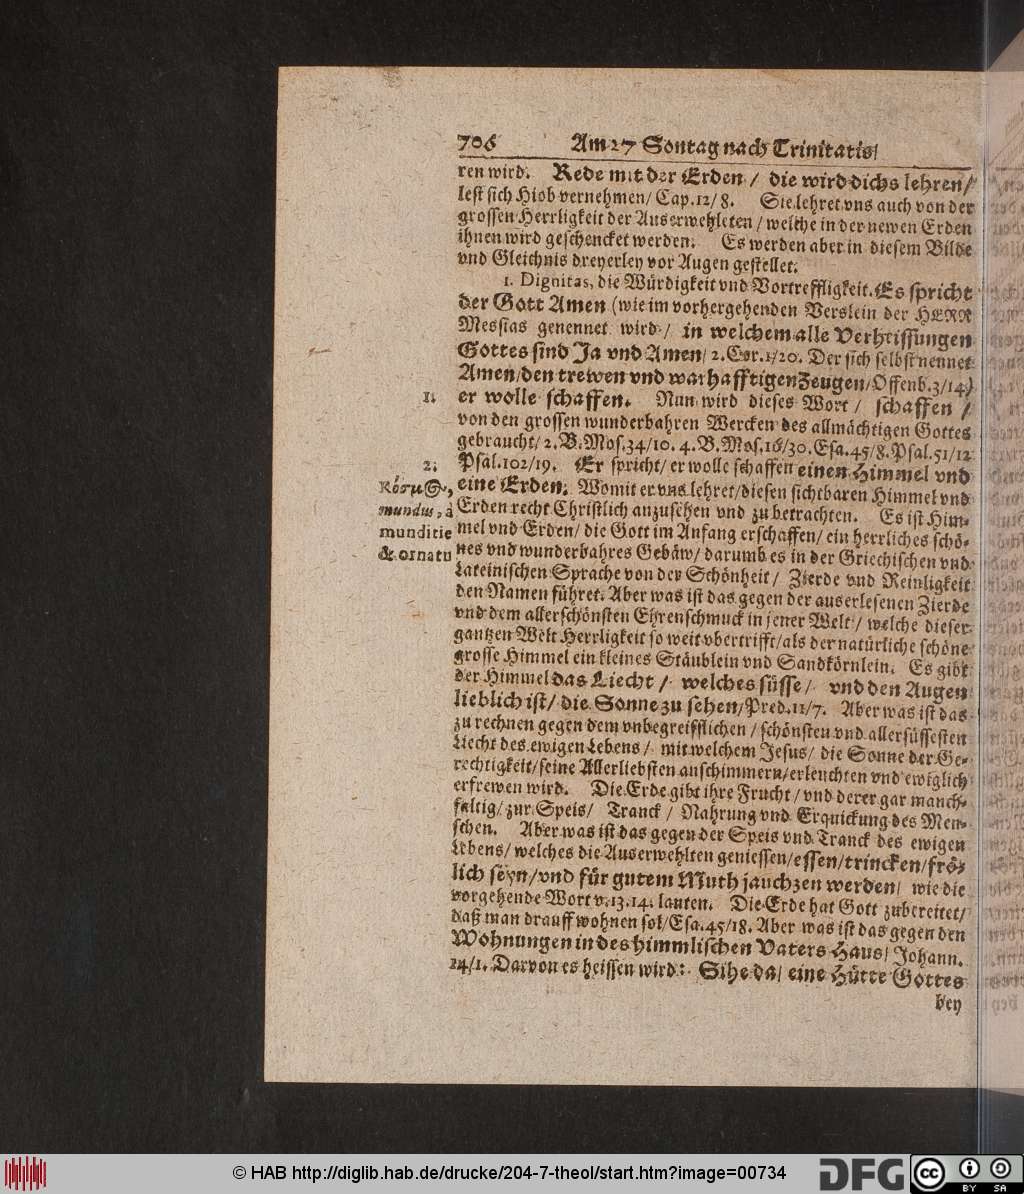 706 Am 27 Sontag nach Trinitatis/
ren wird. Rede mit der Erden / die wird dichs lehren/
lest sich Hiob vernehmen/ Cap. 12/ 8. Sie lehret vns auch von der
grossen Herrligkeit der Auserwehleten / welche in der newen Erden
ihnen wird geschencket werden. Es werden aber in diesem Bilde
vnd Gleichnis dreyerley vor Augen gestellet.
1. Dignitas, die Würdigkeit vnd Vortreffligkeit. Es spricht
der Gott Amen (wie im vorhergehenden Verslein der HERR
Messias genennet wird / in welchem alle Verheissungen
Gottes sind Ja vnd Amen/ 2. Cor. 1/20. Der sich selbst nennet
Amen/ den trewen vnd warhafftigen Zeugen/ Offenb. 3/14)
1. er wolle schaffen. Nun wird dieses Wort / schaffen /
von den grossen wunderbahren Wercken des allmächtigen Gottes
gebraucht/ 2. B. Mos. 34/10. 4. B. Mos. 16/30. Esa. 45/8. Psal. 51/12
2. Psal. 102/19. Er spricht/ er wolle schaffen einen Himmel vnd
Κόσμος, eine Erden. Womit er vns lehret/ diesen sichtbaren Himmel vnd
mundus, à Erden recht Christlich anzusehen vnd zu betrachten. Es ist Him-
munditie mel vnd Erden/ die Gott im Anfang erschaffen/ ein herrliches schö-
& ornatu nes vnd wunderbahres Gebäw/ darumb es in der Griechischen vnd
Lateinischen Sprache von der Schönheit / Zierde vnd Reinligkeit
den Namen führet. Aber was ist das gegen der auserlesenen Zierde
vnd dem allerschönsten Ehrenschmuck in jener Welt / welche dieser
gantzen Welt Herrligkeit so weit vbertrifft/ als der natürliche schöne
grosse Himmel ein kleines Stäublein vnd Sandkörnlein. Es gibt
der Himmel das Liecht / welches süsse / vnd den Augen
lieblich ist/ die Sonne zu sehen/ Pred. 11/7. Aber was ist das
zu rechnen gegen dem vnbegreifflichen / schönsten vnd allersüssesten
Liecht des ewigen Lebens / mit welchem Jesus/ die Sonne der Ge-
rechtigkeit/ seine Allerliebsten anschimmern/ erleuchten vnd ewiglich
erfrewen wird. Die Erde gibt ihre Frucht / vnd derer gar manch-
faltig/ zur Speis/ Tranck / Nahrung vnd Erquickung des Men-
schen. Aber was ist das gegen der Speis vnd Tranck des ewigen
Lebens/ welches die Auserwehlten geniessen/ essen/ trincken/ frö-
lich seyn/ vnd für gutem Muth jauchzen werden/ wie die
vorgehende Wort v. 13. 14. lauten. Die Erde hat Gott zubereitet/
daß man drauff wohnen sol/ Esa. 45/18. Aber was ist das gegen den
Wohnungen in des himmlischen Vaters Haus/ Johann.
14/1. Darvon es heissen wird: Sihe da/ eine Hütte Gottes
bey
© HAB http://diglib.hab.de/drucke/204-7-theol/start.htm?image=00734
DFG
cc BY SA